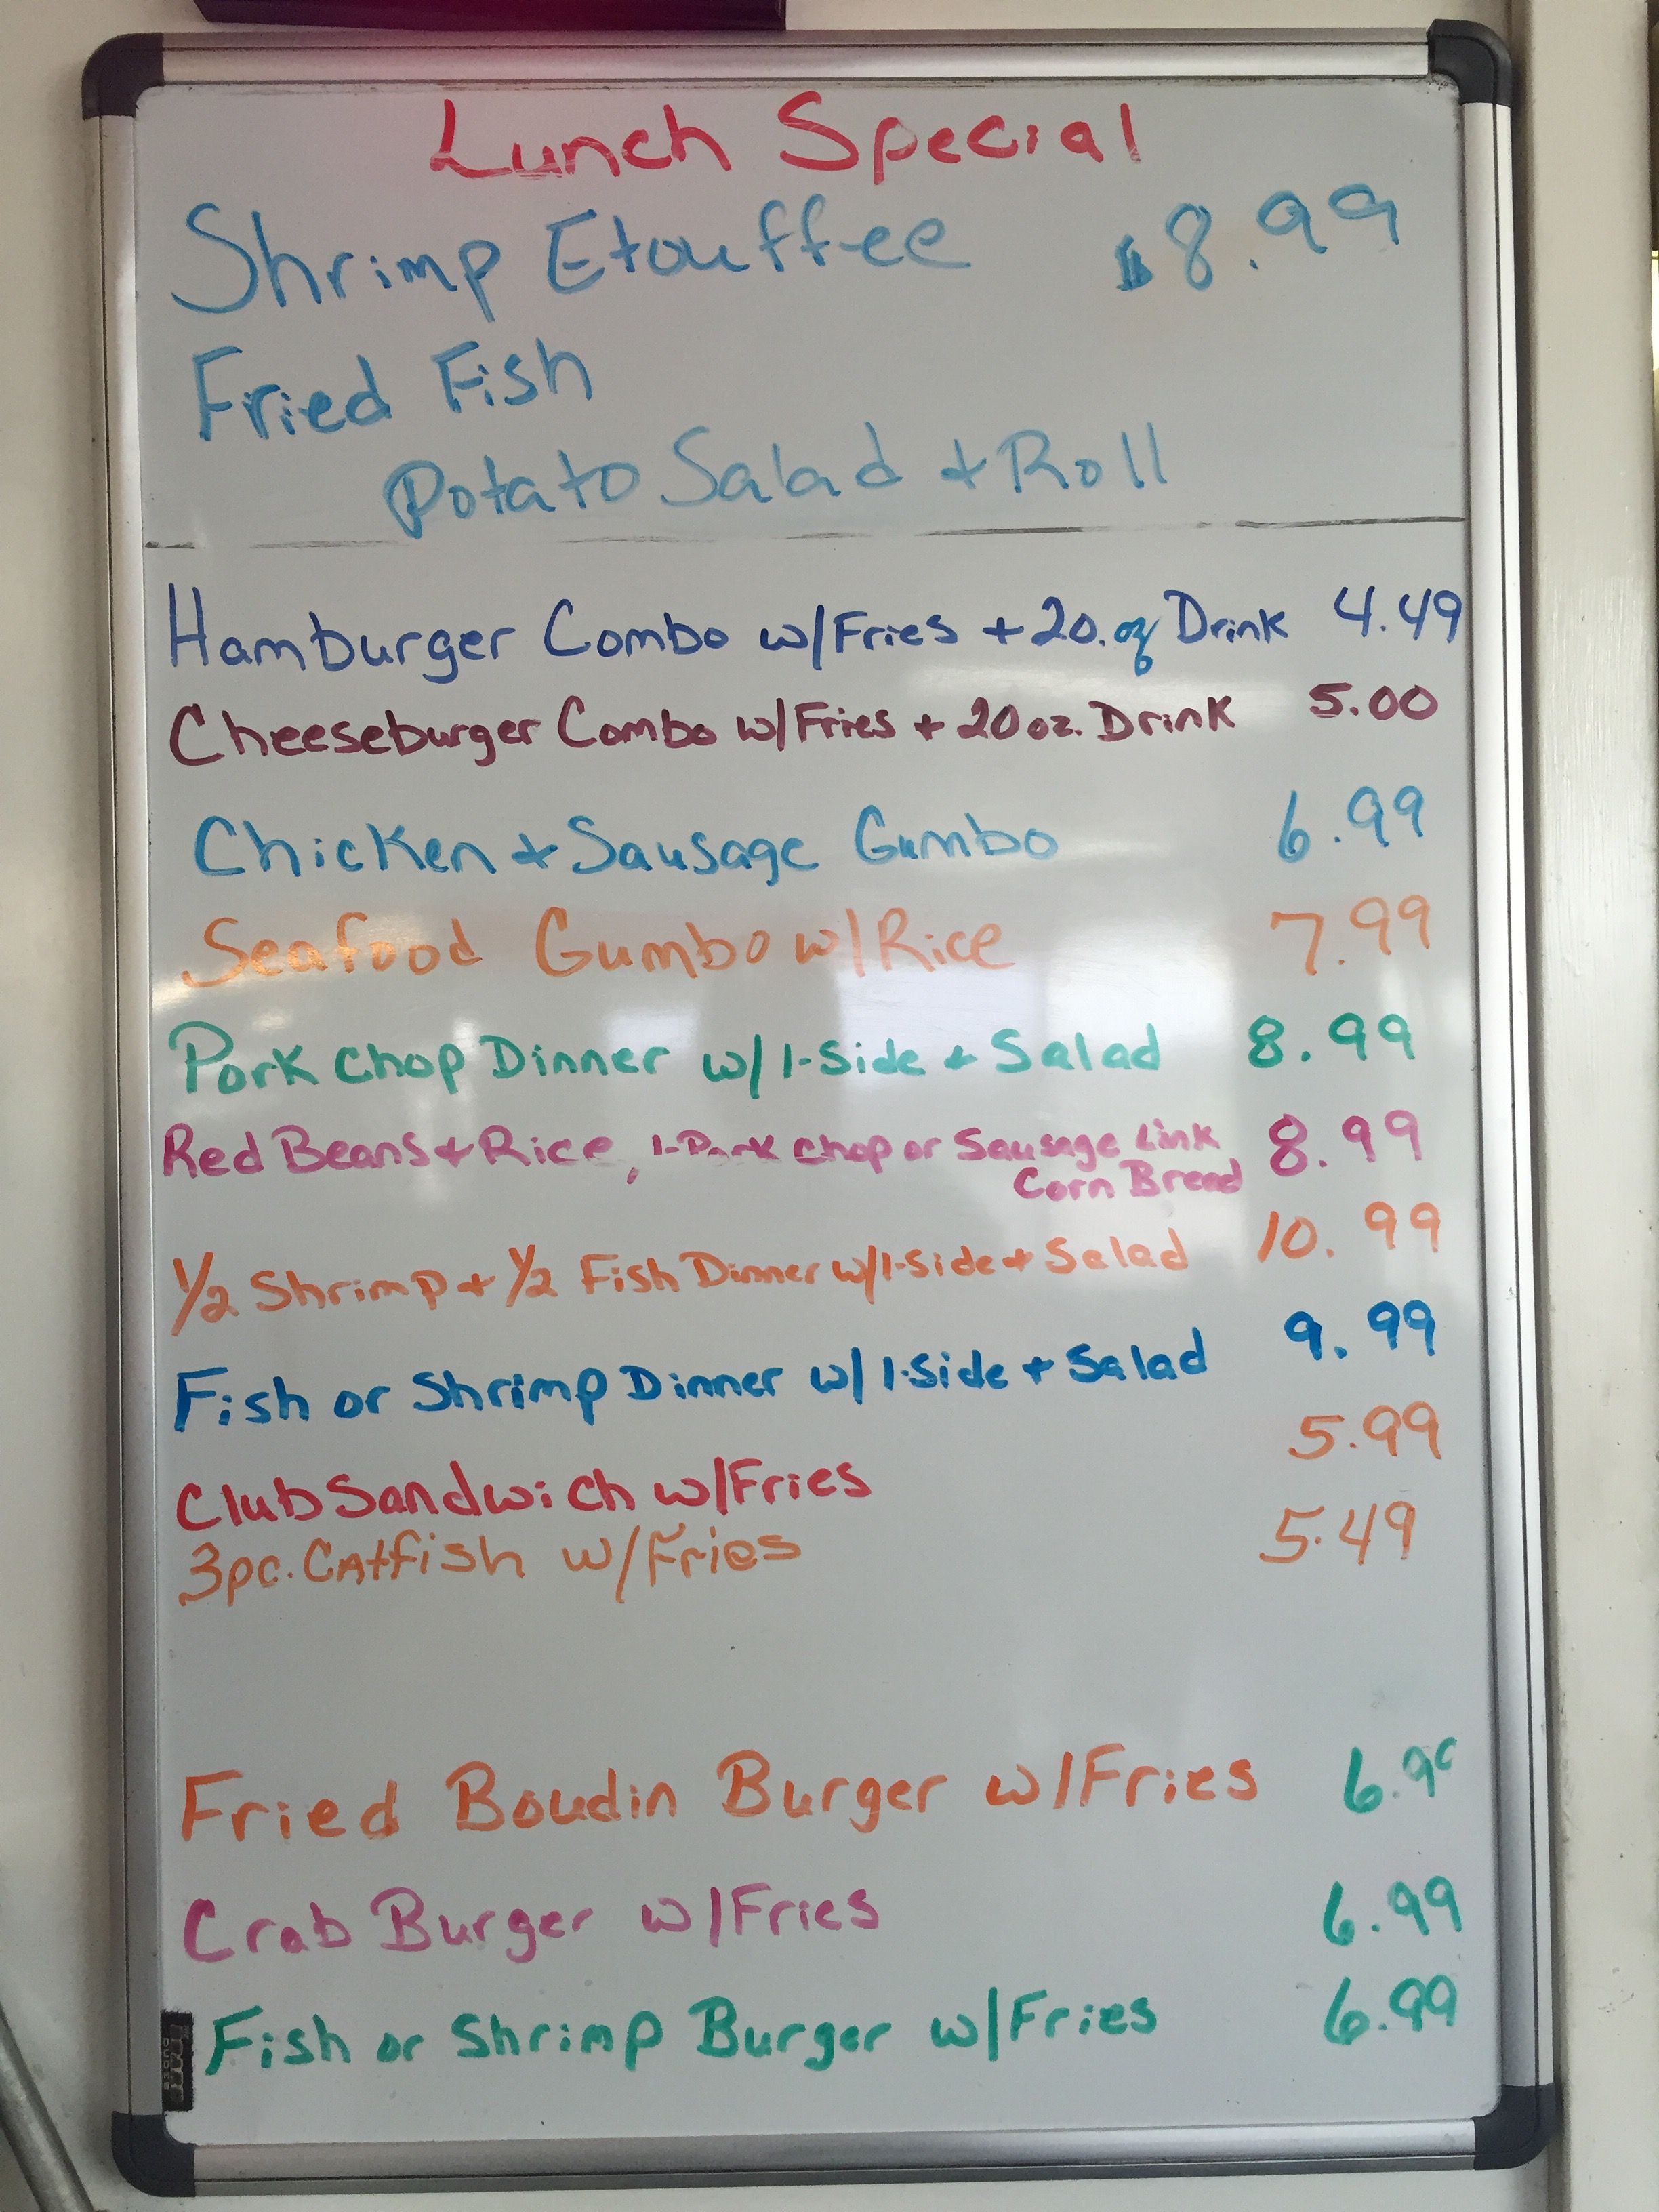 Lunch Special
Shrimp Etouffee $8.99
Fried Fish
Potato Salad + Roll
Hamburger Combo w/Fries + 20.oz Drink 4.49
Cheeseburger Combo w/Fries + 20 oz. Drink 5.00
Chicken + Sausage Gumbo 6.99
Seafood Gumbo w/Rice 7.99
Pork Chop Dinner w/ 1-Side + Salad 8.99
Red Beans + Rice, 1-Pork Chop or Sausage Link 8.99
Corn Bread
1/2 Shrimp + 1/2 Fish Dinner w/1-Side + Salad 10.99
Fish or Shrimp Dinner w/ 1-Side + Salad 9.99
Club Sandwich w/Fries 5.99
3pc. Catfish w/Fries 5.49
Fried Boudin Burger w/Fries
Crab Burger w/Fries 6.99
Fish or Shrimp Burger w/Fries 6.99